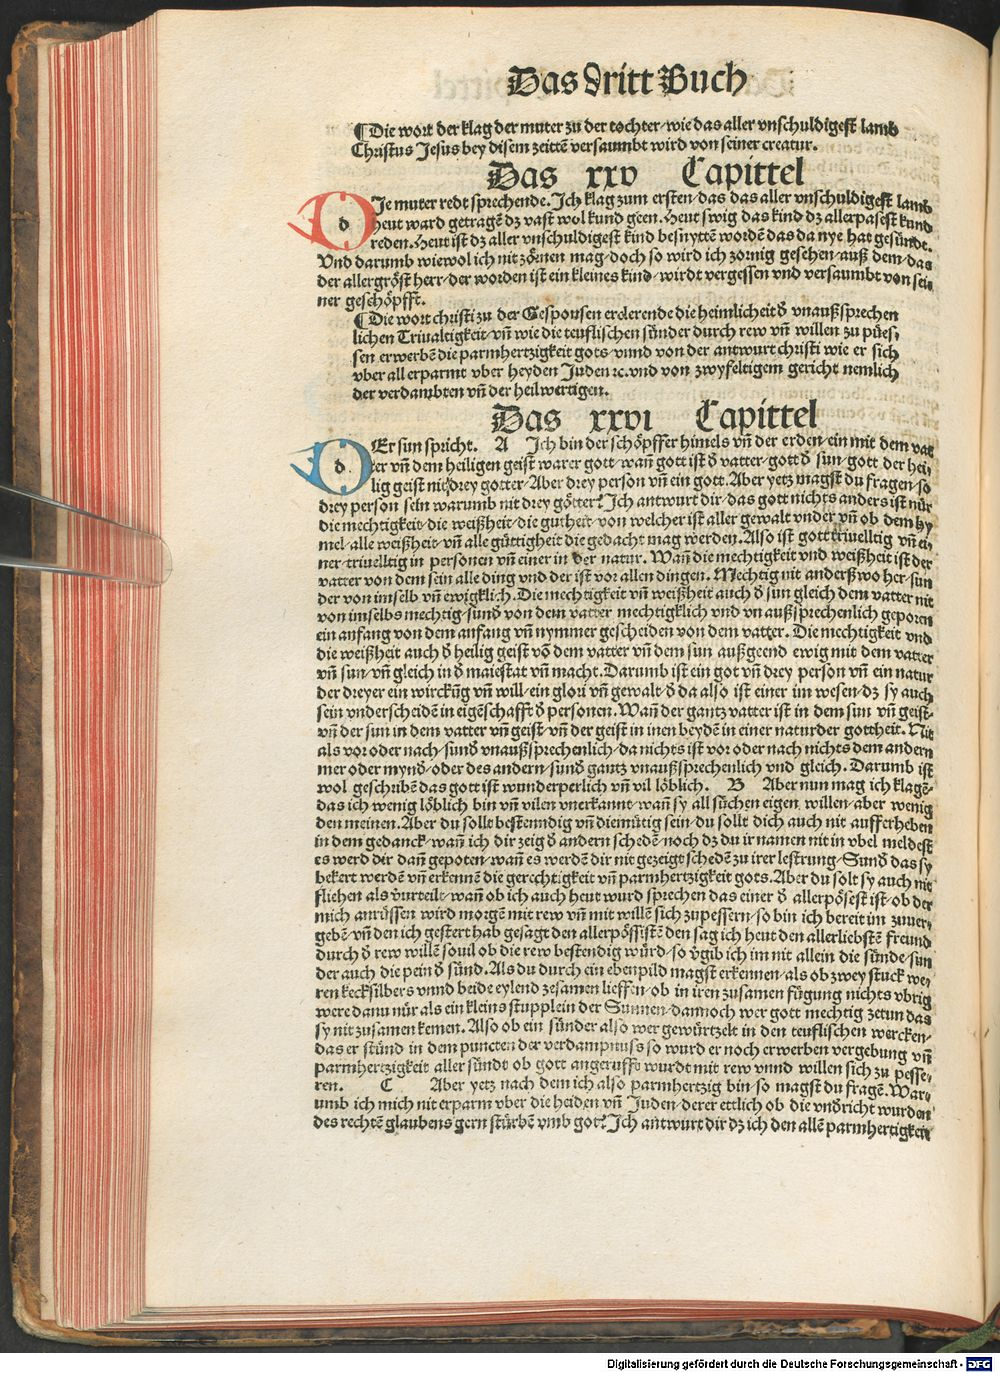 Das dritt Buch
¶ Die wort der klag der muter zu der tochter/wie das aller vnschuldigest lamb
Christus Jesus bey disem zeittē versaumbt wird von seiner creatur.
Das xxv Capittel
d
DJe muter redt sprechende. Jch klag zum ersten/das das aller vnschuldigest lamb
heut ward getragē dz vast wol kund geen. Heut swig das kind dz allerpasest kund
reden. Heut ist dz aller vnschuldigest kind besnyttē wordē das da nye hat gesūndt.
Vnd darumb wiewol ich nit zörnen mag/doch so wird ich zornig gesehen/auß dem/das
der allergröst herr/der worden ist ein kleines kind/wirdt vergessen vnd versaumbt von sei/
ner geschöpfft.
¶ Die wort christi zu der Gespousen erclerende die heimlicheit d̄ vnaußsprechen
lichen Triualtigkeit/vn̄ wie die teuflischen sünder durch rew vn̄ willen zu pües/
sen erwerbē die parmhertzigkeit gots/vnnd von der antwurt christi wie er sich
vber all erparmt vber heyden Juden ꝛc.vnd von zwyfeltigem gericht nemlich
der verdambten vn̄ der heilwertigen.
Das xxvi Capittel
d
DEr sun spricht. A Jch bin der schöpffer himels vn̄ der erden/ein mit dem vat
ter vn̄ dem heiligen geist warer gott/wan̄ gott ist d̄ vatter/gott d̄ sun/gott der hei/
lig geist nit drey götter/Aber drey person vn̄ ein gott. Aber yetz magst du fragen/so
drey person sein warumb nit drey götter? Jch antwurt dir/das gott nichts anders ist nür
die mechtigkeit/die weißheit/die gutheit/von welcher ist aller gewalt vnder vn̄ ob dem hy
mel/alle weißheit/vn̄ alle güttigheit die gedacht mag werden. Also ist gott triuelltig vn̄ ei/
ner/triuelltig in personen vn̄ einer in der natur. Wan̄ die mechtigkeit vnd weißheit ist der
vatter von dem sein alle ding vnd der ist vor allen dingen. Mechtig nit anderßwo her/sun
der von imselb vn̄ ewigklich. Die mechtigkeit vn̄ weißheit auch d̄ sun gleich dem vatter nit
von imselbs mechtig/sund̄ von dem vatter mechtigklich vnd vn außsprechenlich geporen
ein anfang von dem anfang vn̄ nymmer gescheiden von dem vatter. Die mechtigkeit vnd
die weißheit auch d̄ heilig geist vō dem vatter vn̄ dem sun außgeend ewig mit dem vatter
vn̄ sun/vn̄ gleich in d̄ maiestat vn̄ macht. Darumb ist ein got vn̄ drey person vn̄ ein natur
der dreyer ein wirckūg vn̄ will/ein glori vn̄ gewalt/d̄ da also ist einer im wesen/dz sy auch
sein vnderscheidē in eigēschafft d̄ personen. Wan̄ der gantz vatter ist in dem sun vn̄ geist/
vn̄ der sun in dem vatter vn̄ geist/vn̄ der geist in inen beydē in einer natur der gottheit. Nit
als vor oder nach/sund̄ vnaußsprechenlich/da nichts ist vor oder nach nichts dem andern
mer oder mynd̄/oder des andern/sund̄ gantz vnaußsprechenlich vnd gleich. Darumb ist
wol geschribē das gott ist wunderperlich vn̄ vil löblich. B Aber nun mag ich klagē/
das ich wenig löblich bin vn̄ vilen vnerkannt/wan̄ sy all süchen eigen willen/aber wenig
den meinen. Aber du sollt bestenndig vn̄ diemütig sein/du sollt dich auch nit aufferheben
in dem gedanck/wan̄ ich dir zeig d̄ andern schedē/noch dz du ir namen nit in vbel meldest
es werd dir dan̄ gepoten/wan̄ es werdē dir nit gezeigt schedē zu irer lestrung/Sund̄ das sy
bekert werdē vn̄ erkennē die gerechtigkeit vn̄ parmhertzigkeit gots. Aber du solt sy auch nit
fliehen als v̄urteilt/wan̄ ob ich auch heut wurd sprechen das einer d̄ allerpösest ist/ob der
mich anrüffen wird morgē mit rew vn̄ mit willē sich zupessern/so bin ich bereit im zuuer/
gebē/vn̄ den ich gestert hab gesagt den allerpössistē den sag ich heut den allerliebstē freund
durch d̄ rew willē souil ob die rew bestendig würd/so v̄gib ich im nit allein die sünde/sun
der auch die pein d̄ sünd. Als du durch ein ebenpild magst erkennen/als ob zwey stuck we/
ren kecksilbers vnnd beide eylend zesamen lieffen/ob in iren zusamen fügung nichts vbrig
were danu nür als ein kleins stupplein der Sunnen/dannoch wer gott mechtig zetun das
sy nit zusamen kemen. Also ob ein sünder also wer gewürtzelt in den teuflischen wercken/
das er stünd in dem puncten der verdampnuss so wurd er noch erwerben vergebung vn̄
parmhertzigkeit aller sündt ob gott angerufft wurdt mit rew vnnd willen sich zu pesse/
ren. C Aber yetz nach dem ich also parmhertzig bin/so magst du fragē. War/
umb ich mich nit erparm vber die heiden vn̄ Juden/derer ettlich ob die vnd̄richt wurden
des rechtē glaubens gern stürbē vmb got? Jch antwurt dir dz ich den allē parmhertigkeit
Digitalisierung gefördert durch die Deutsche Forschungsgemeinschaft - DFG